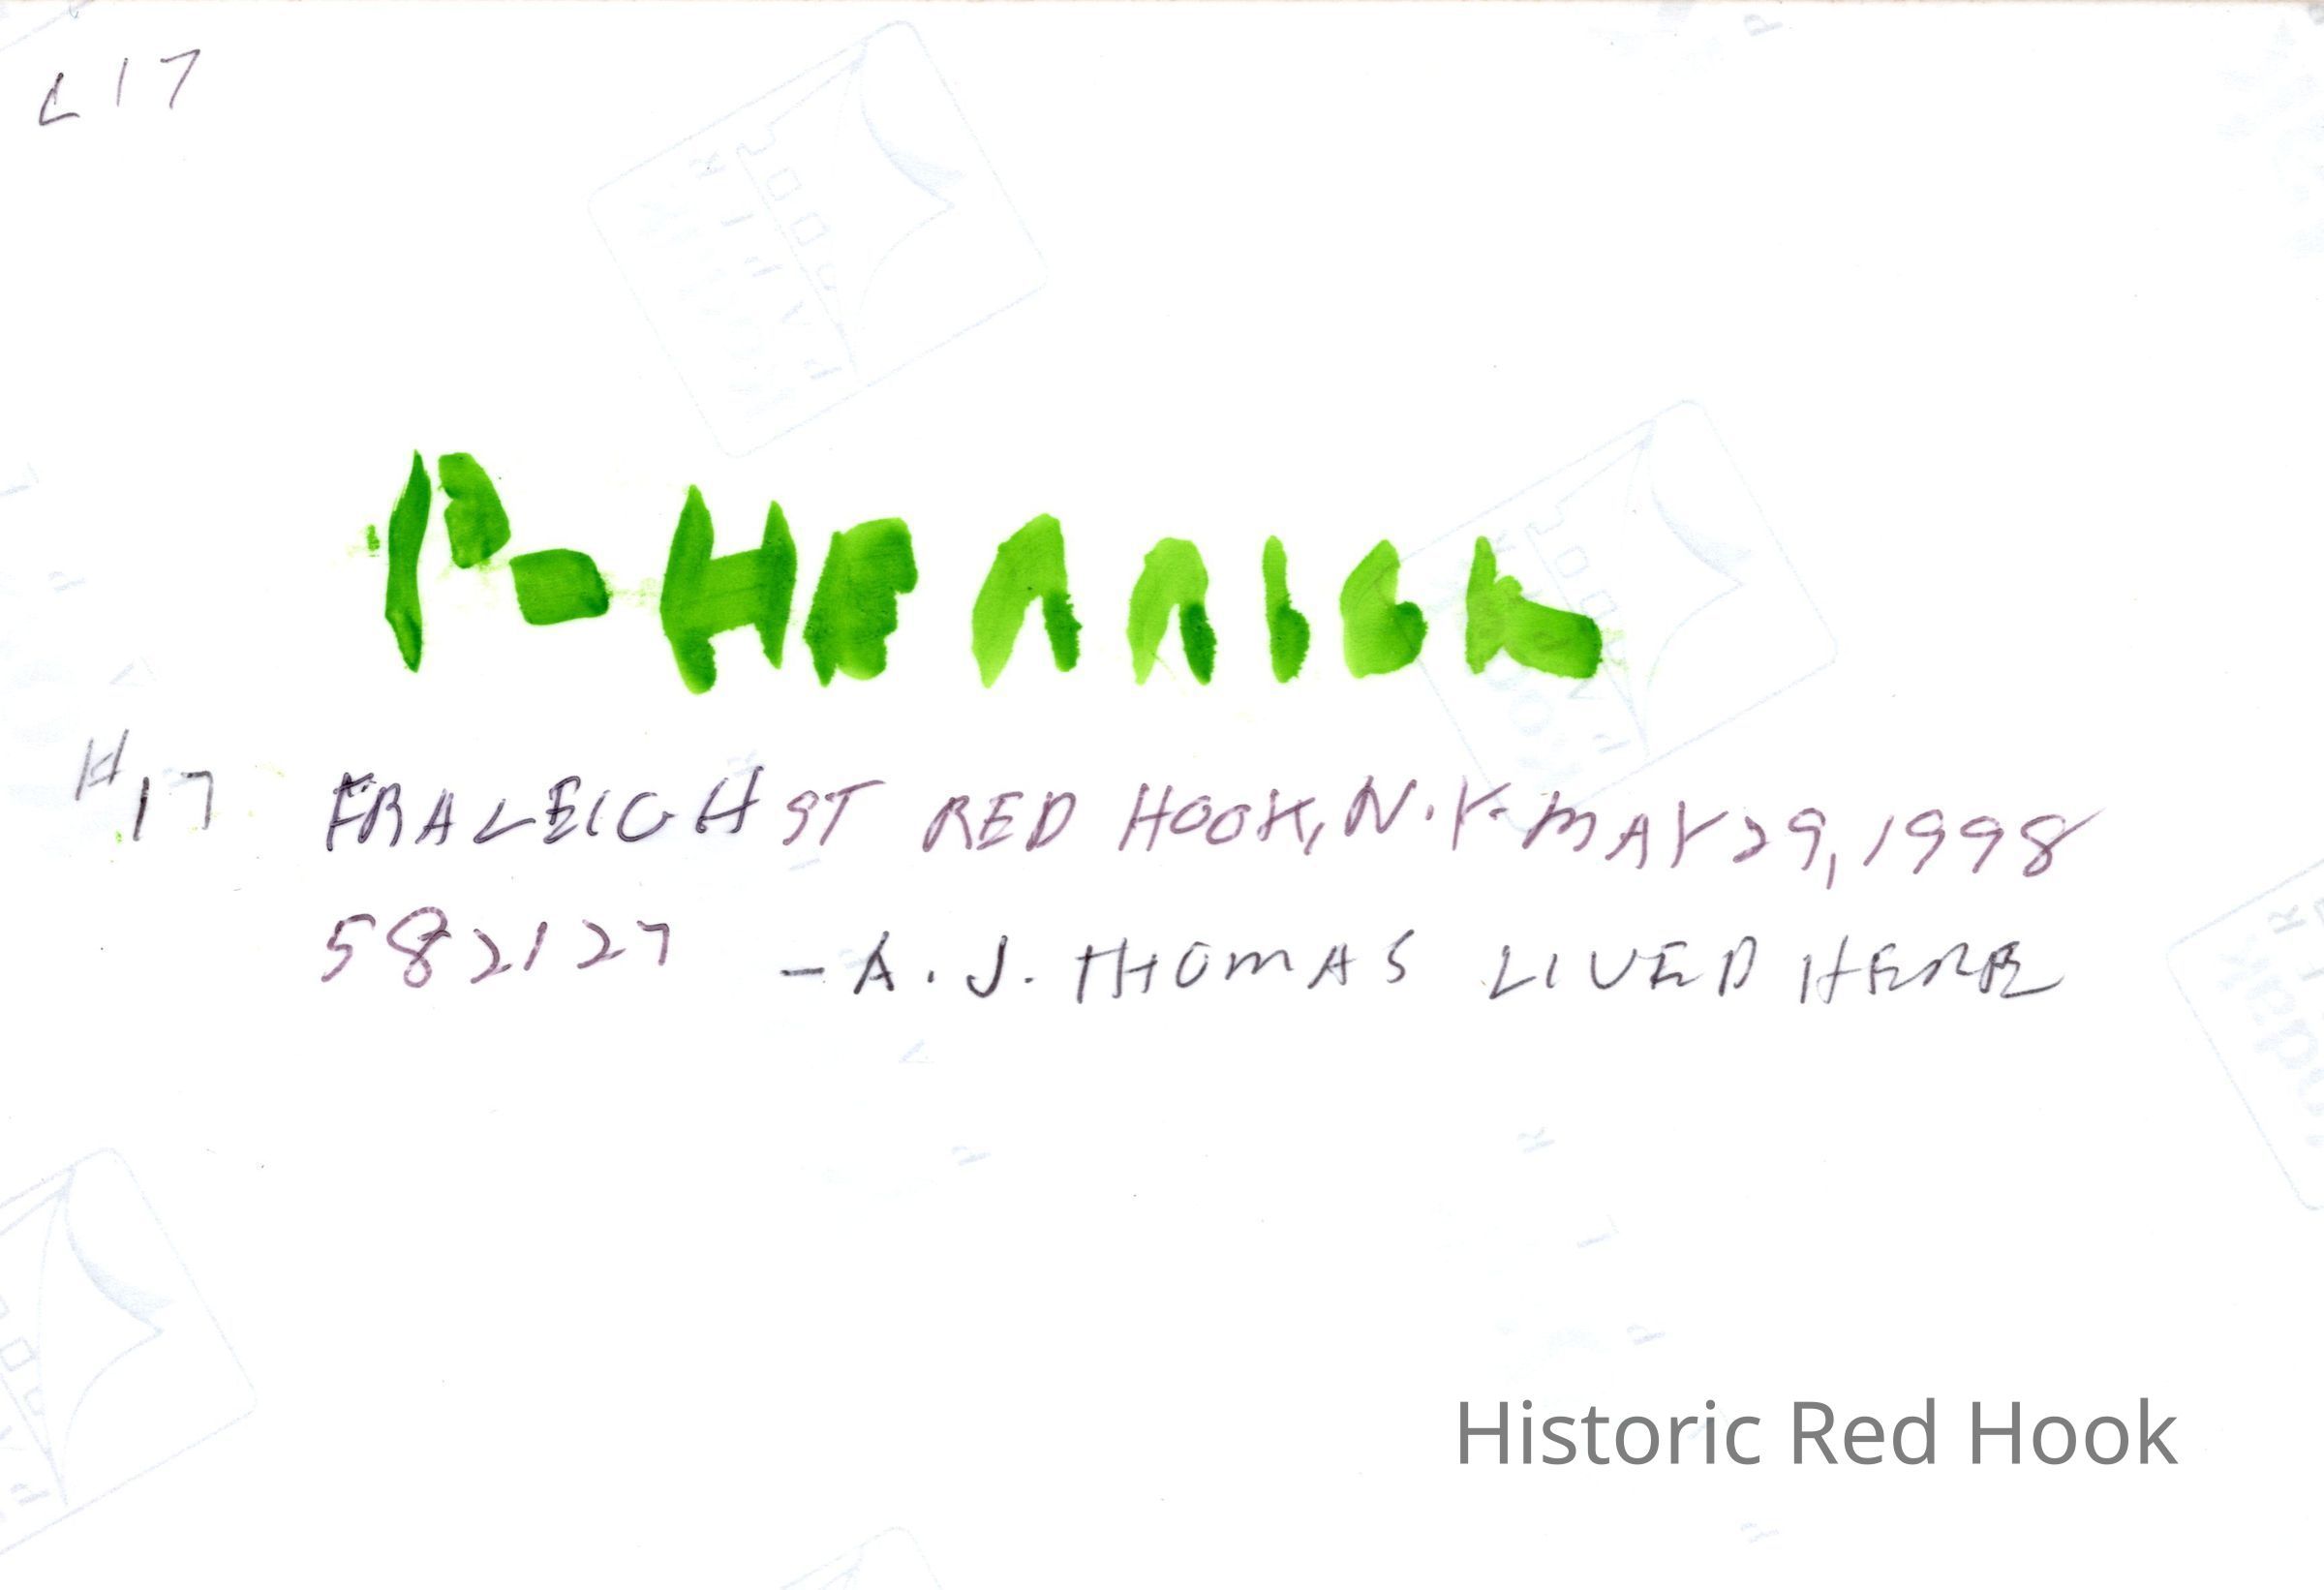 L17
P-HERRICK
#17 FRALEIGH ST RED HOOK, N.Y. MAY 29, 1998
582127 - A.J. THOMAS LIVED HERE
Historic Red Hook